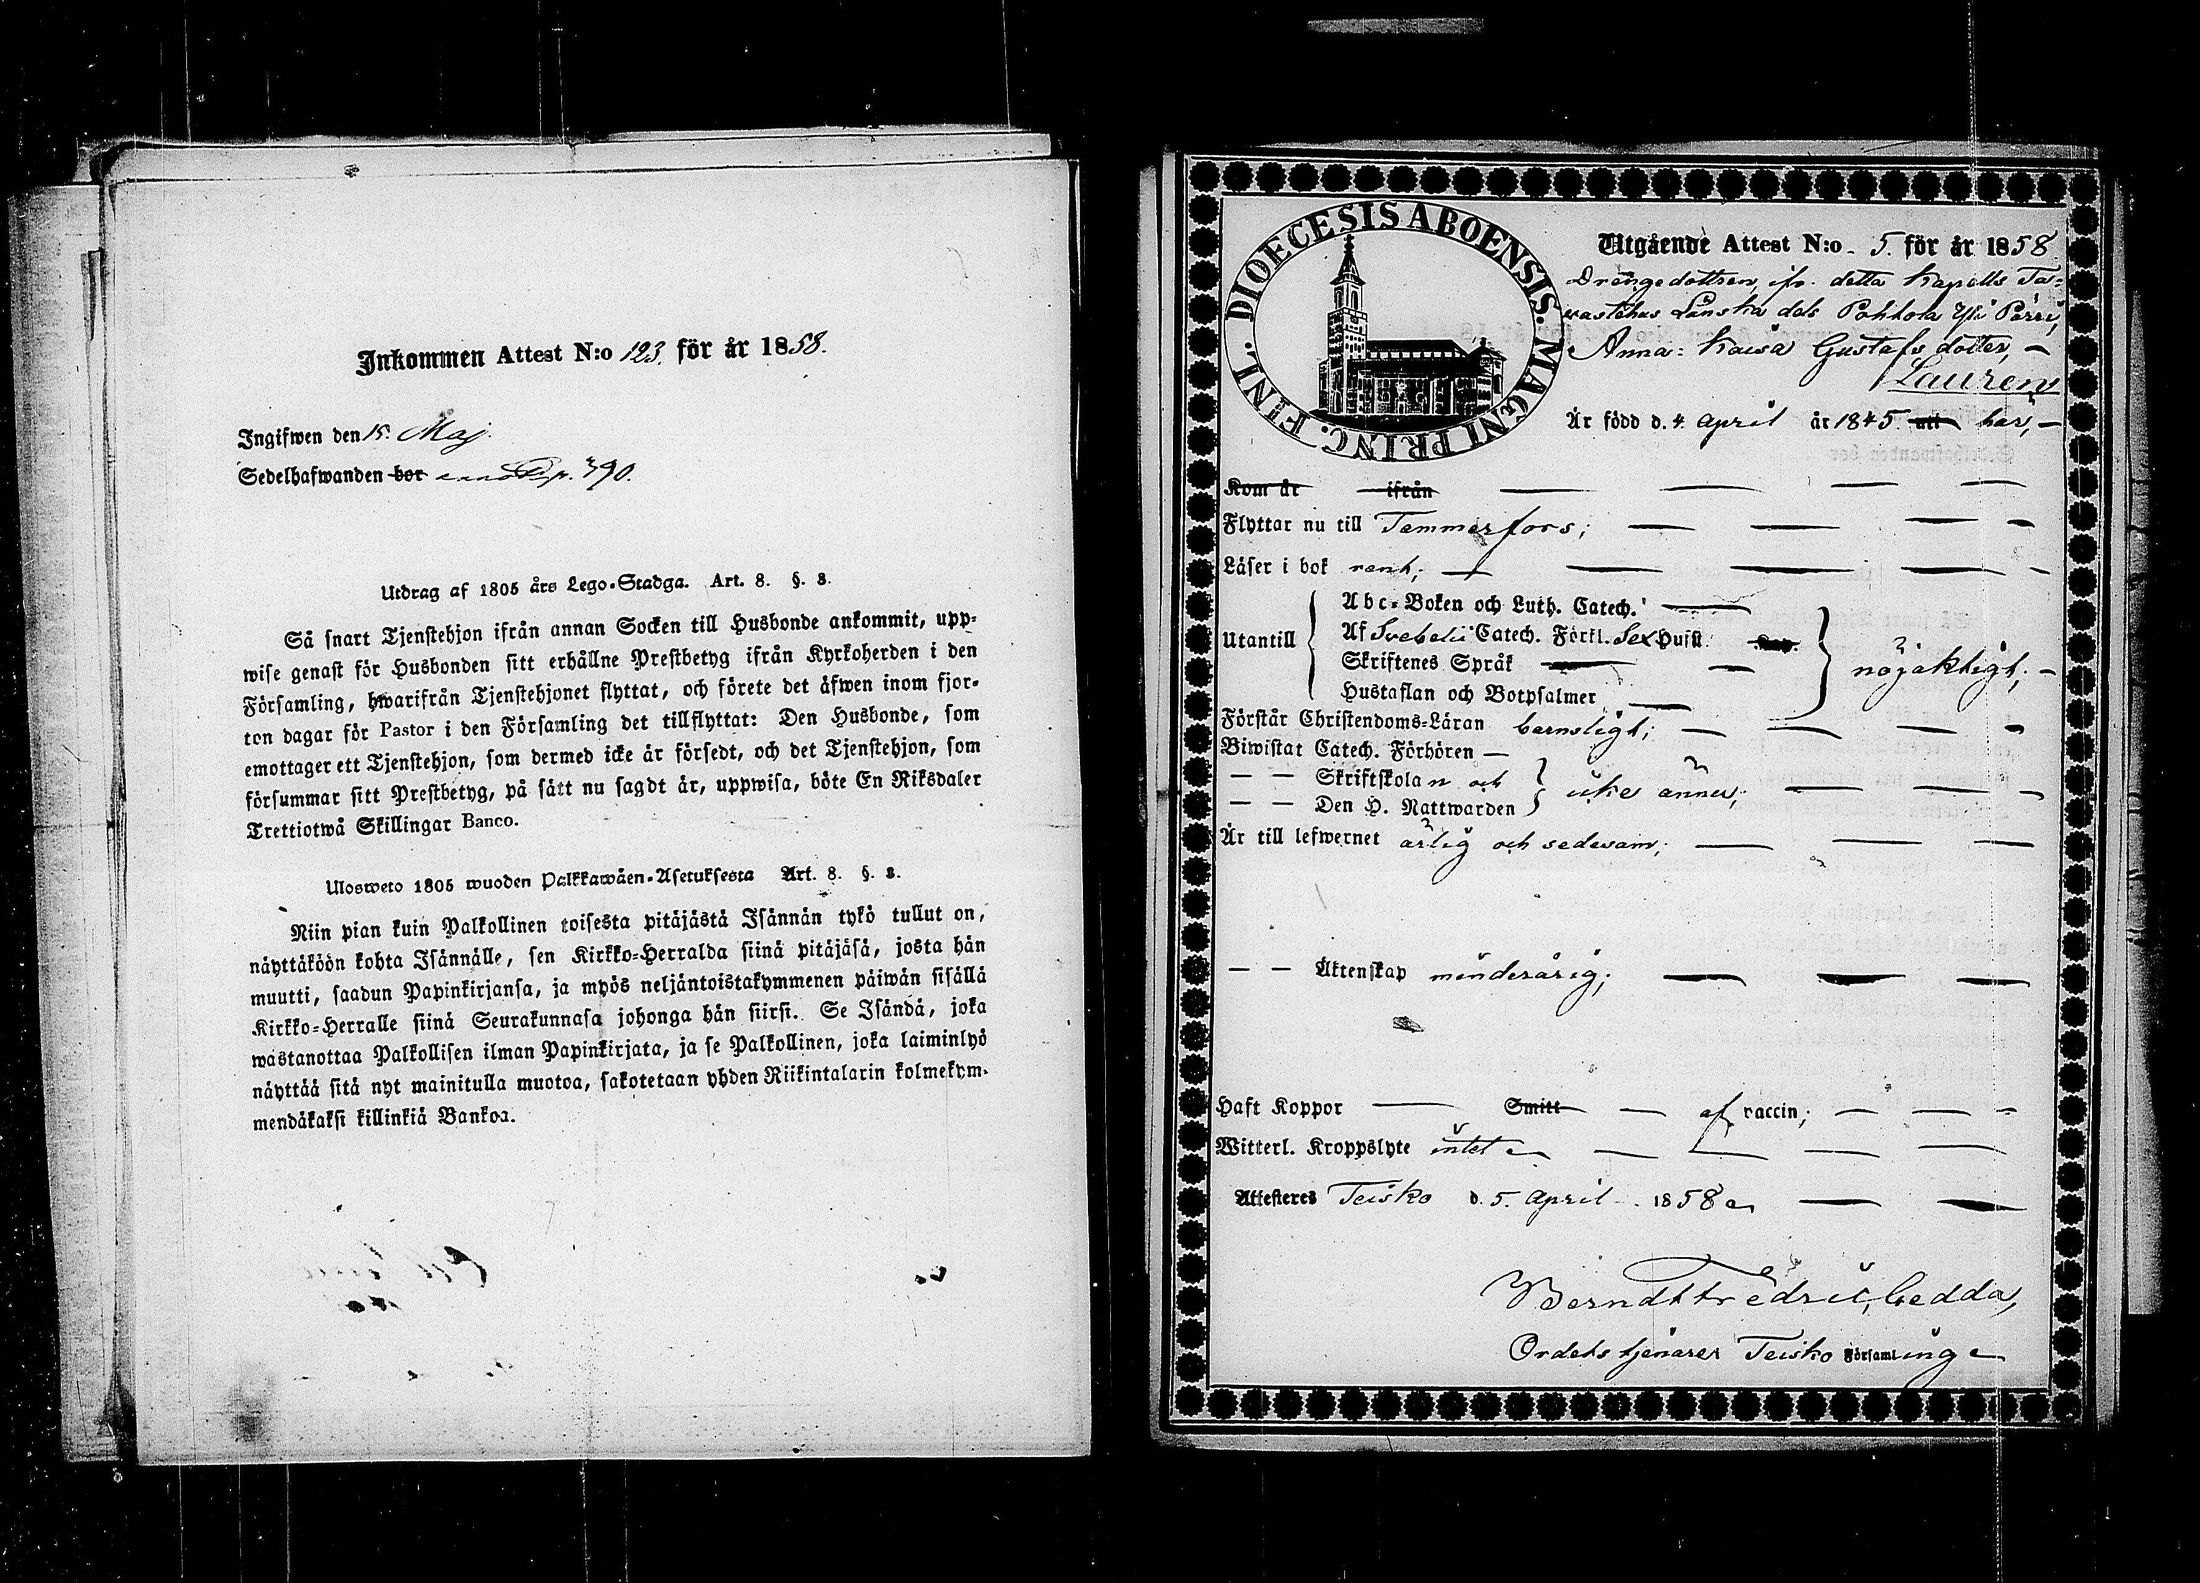 Inkommen Attest N:o 123. för år 1858.
Ingifwen den 15. Maj.
Sedelhafwanden bor p. 390.
Utdrag af 1805 års Lego-Stadga. Art. 8. §. 3.
Så snart Tjenstehjon ifrån annan Socken till Husbonde ankommit, upp-
wise genast för Husbonden sitt erhållne Prestbetyg ifrån Kyrkoherden i den
Församling, hwarifrån Tjenstehjonet flyttat, och förete det äfwen inom fjor-
ton dagar för Pastor i den Församling det tillflyttat: Den Husbonde, som
emottager ett Tjenstehjon, som dermed icke är försedt, och det Tjenstehjon, som
försummar sitt Prestbetyg, på sätt nu sagdt är, uppwisa, böte En Riksdaler
Trettiotwå Skillingar Banco.
Ulosweto 1805 wuoden Palkkawäen-Asetuksesta Art. 8. §. 3.
Niin pian kuin Palkollinen toisesta pitäjästä Isännän tykö tullut on,
näyttäköön kohta Isännälle, sen Kirkko-Herralda siinä pitäjäsä, josta hän
muutti, saadun Papinkirjansa, ja myös neljäntoistakymmenen päiwän sisällä
Kirkko-Herralle siinä Seurakunnasa johonga hän siirsi. Se Isändä, joka
wastanottaa Palkollisen ilman Papinkirjata, ja se Palkollinen, joka laiminlyö
näyttää sitä nyt mainitulla muotoa, sakotetaan yhden Riikintalarin kolmekym-
mendäkaksi killinkiä Bankoa.
DIOECESIS ABOENSIS. MAGNI PRINC. FINL.
Utgående Attest N:o 5. för år 1858
Drängedottren, ifr. detta Kapells Ta-
wastehus Länska dels Pohtola Yli Pärri,
Anna Kaisa Gustafs dotter, —
Laurens
Är född d. 4. April år 1845. uti här, —
Kom år ifrån
Flyttar nu till Tammerfors;
Läser i bok rent;
Utantill
Abc-Boken och Luth. Catech.
Af Svebelii Catech. Förkl. Sex Hufst. Kap.
Skriftenes Språk
Hustaflan och Botpsalmer
nöjaktigt; —
Förstår Christendoms-Läran barnsligt;
Biwistat Catech. Förhören —
— — Skriftskolan och
— — Den H. Nattwarden
icke ännu;
Är till lefwernet ärlig och sedesam;
— — Äktenskap minderårig;
Haft Koppor — Smitt — af vaccin;
Witterl. Kroppslyte intet
Attesteres Teisko d. 5. April 1858
Berndt Fredric Gedda,
Ordets tjenare i Teisko Församling